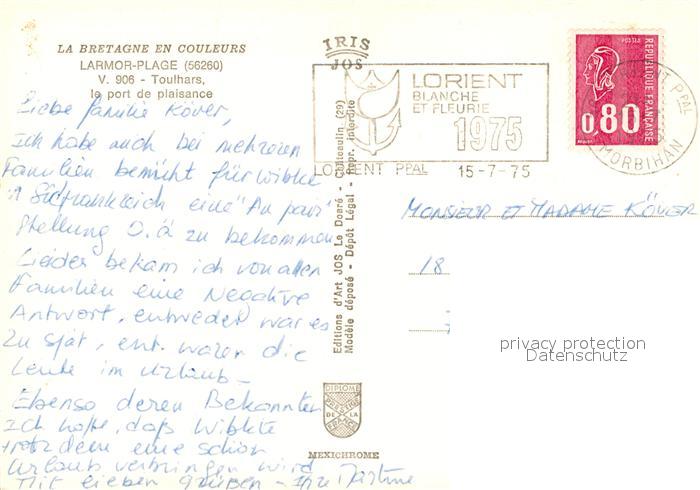 LA BRETAGNE EN COULEURS
LARMOR-PLAGE (56260)
V. 906 - Toulhars,
le port de plaisance
Liebe Familie Köver,
Ich habe auch bei mehreren
Familien bemüht für Wibke
in Südfrankreich eine "Au pair"
Stellung o.ä zu bekommen
Leider bekam ich von allen
Familien eine Negative
Antwort, entweder war es
zu spät, ent. waren die
Leute im Urlaub –
Ebenso deren Bekannten
Ich hoffe, daß Wibke
trotzdem eine schön
Urlaub verbringen wird
Mit lieben Grüßen – Ihre
IRIS
JOS
Editions d'Art JOS Le Doaré - Châteaulin (29)
Modèle déposé - Dépôt Légal - Repr. interdite
DIPLOME
PRESTIGE
DE LA
FRANCE
MEXICHROME
LORIENT
BLANCHE
ET FLEURIE
1975
LORIENT PPAL 15-7-75
POSTES
REPUBLIQUE FRANÇAISE
0,80
LORIENT PPAL
MORBIHAN
MONSIEUR ET MADAME KÖVER
18
privacy protection
Datenschutz